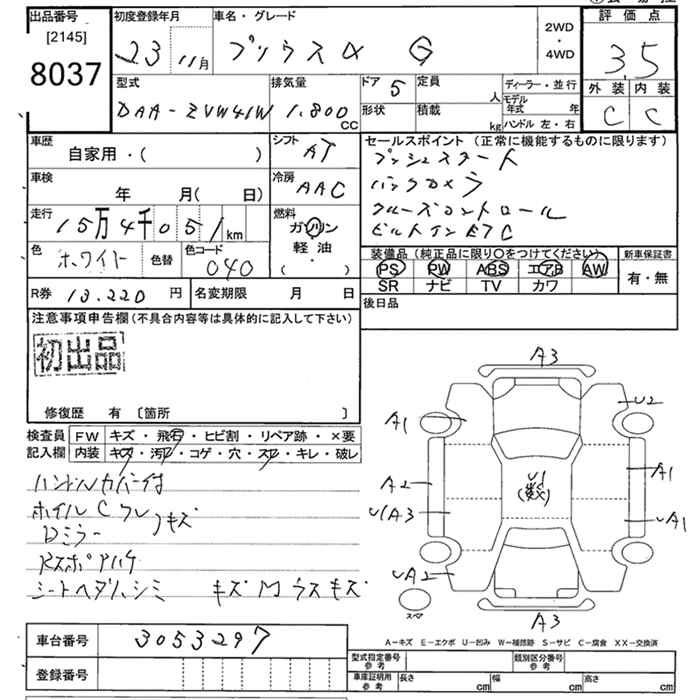 出品番号 初度登録年月 車名・グレード 評価点
[2145]
8037
23 11月 プリウスα G 2WD・4WD 3.5
型式 排気量 ドア 5 定員 人 ディーラー・並行 外装 内装
DAA-ZVW41W 1,800 CC 形状 積載 kg モデル年式 年 C C
ハンドル 左・右
車歴 シフト セールスポイント (正常に機能するものに限ります)
自家用・( ) AT プッシュスタート
車検 冷房 バックカメラ
年 月( 日) AAC クルーズコントロール
走行 15万4千051km 燃料 ガソリン・軽油・( ) ビルトインETC
色 ホワイト 色替 色コード 040
装備品 (純正品に限り○をつけてください) 新車保証書
PS PW ABS エアB AW 有・無
SR ナビ TV カワ
R券 13,220 円 名変期限 月 日 後日品
注意事項申告欄 (不具合内容等は具体的に記入して下さい)
初出品
修復歴 有 [箇所 ]
検査員記入欄 FW キズ・飛石・ヒビ割・リペア跡・×要
内装 キズ・汚れ・コゲ・穴・スレ・キレ・破レ
ハンドルカバー付
ホイルCフレ
Dミラー 〉キズ
Rスポ
シートヘタリ、シミ キズ M ウスキズ
A3
A1
U2
A2
A1
U1
(数)
UA1
UA2
A3
スペア
A-キズ E-エクボ U-凹み W-補修跡 S-サビ C-腐食 XX-交換済
車台番号 3053297
登録番号
型式指定番号 参考 類別区分番号 参考
車庫証明用 参考 長さ cm 幅 cm 高さ cm